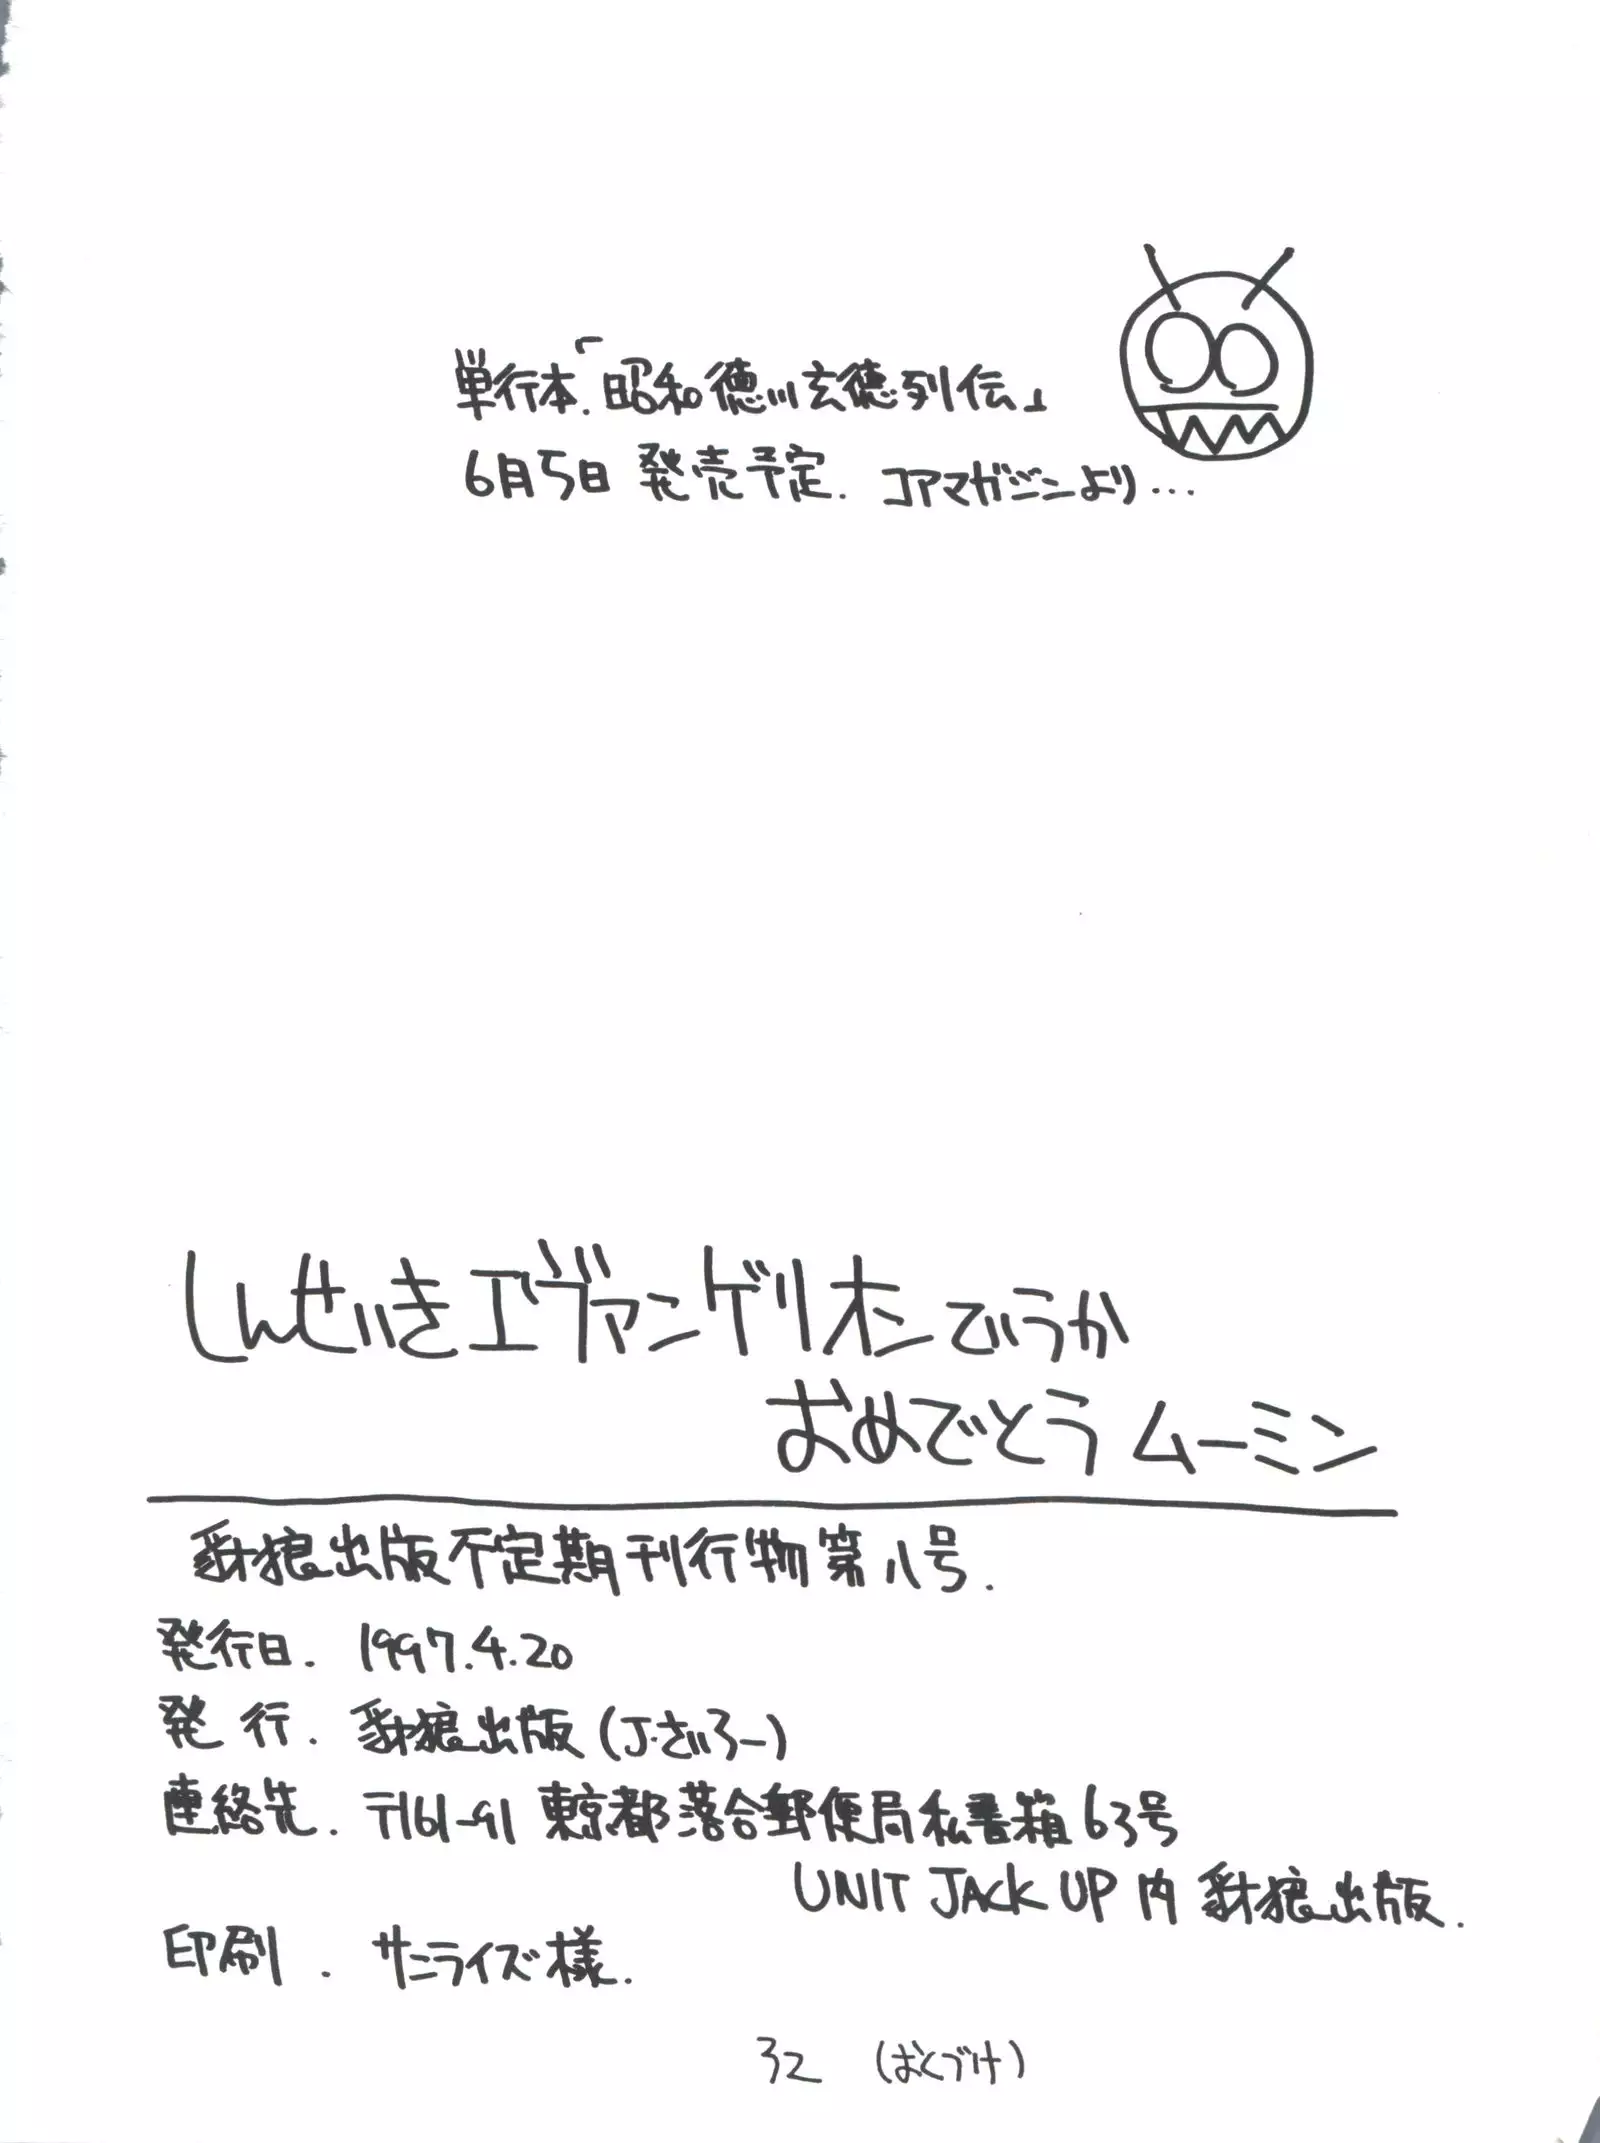 単行本.「昭和徳川玄徳列伝」
6月5日 発売予定. コアマガジンより...
しんせいきエヴァンゲリオン ていうか
おめでとう ムーミン
豺狼出版不定期刊行物第八号.
発行日. 1997.4.20
発 行. 豺狼出版 (J・さいろー)
連絡先. 〒161-91 東京都落合郵便局私書箱63号
UNIT JACK UP 内 豺狼出版.
印刷. サンライズ様.
32 (おくづけ)